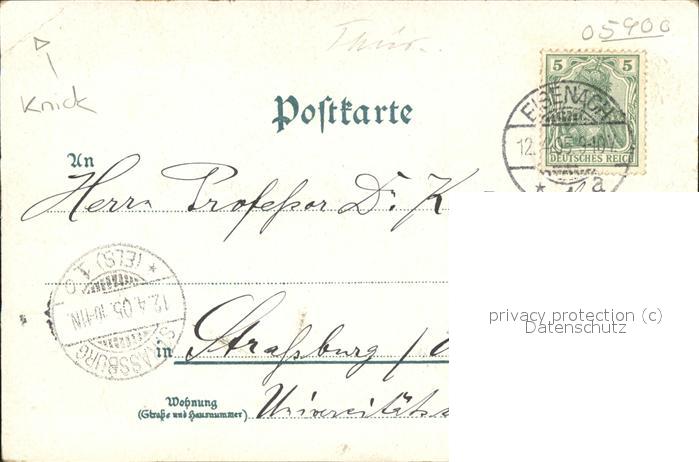 05900
Thür.
Knick
Postkarte
5 5
DEUTSCHES REICH
EISENACH
12.4.05. 9-10V.
* a
An
Herrn Professor Dr. K
* (ELS) 1 O
12.4.05. 10-11N.
STRASSBURG
privacy protection (c)
Datenschutz
in Straßburg /
Wohnung
(Straße und Hausnummer)
Universitäts